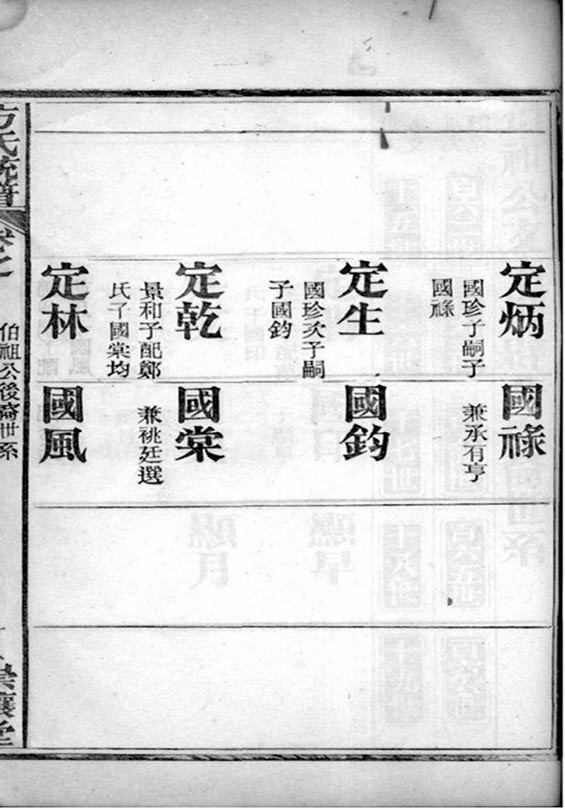 定炳
國珍子嗣子
國祿
國祿
兼承有亨
定生
國珍次子嗣
子國鈞
國鈞
定乾
景和子配鄭
氏子國棠均
國棠
兼祧廷選
定林
國風
方氏統譜
卷之
伯祖公後裔世系